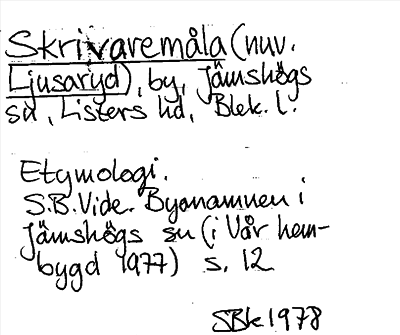 Skrivaremåla (nuv.
Ljusaryd), by, Jämshögs
sn, Listers hd, Blek. l.
Etymologi.
S.B.Vide. Byanamnen i
Jämshögs sn (i Vår hem-
bygd 1977) s. 12
SBk 1978